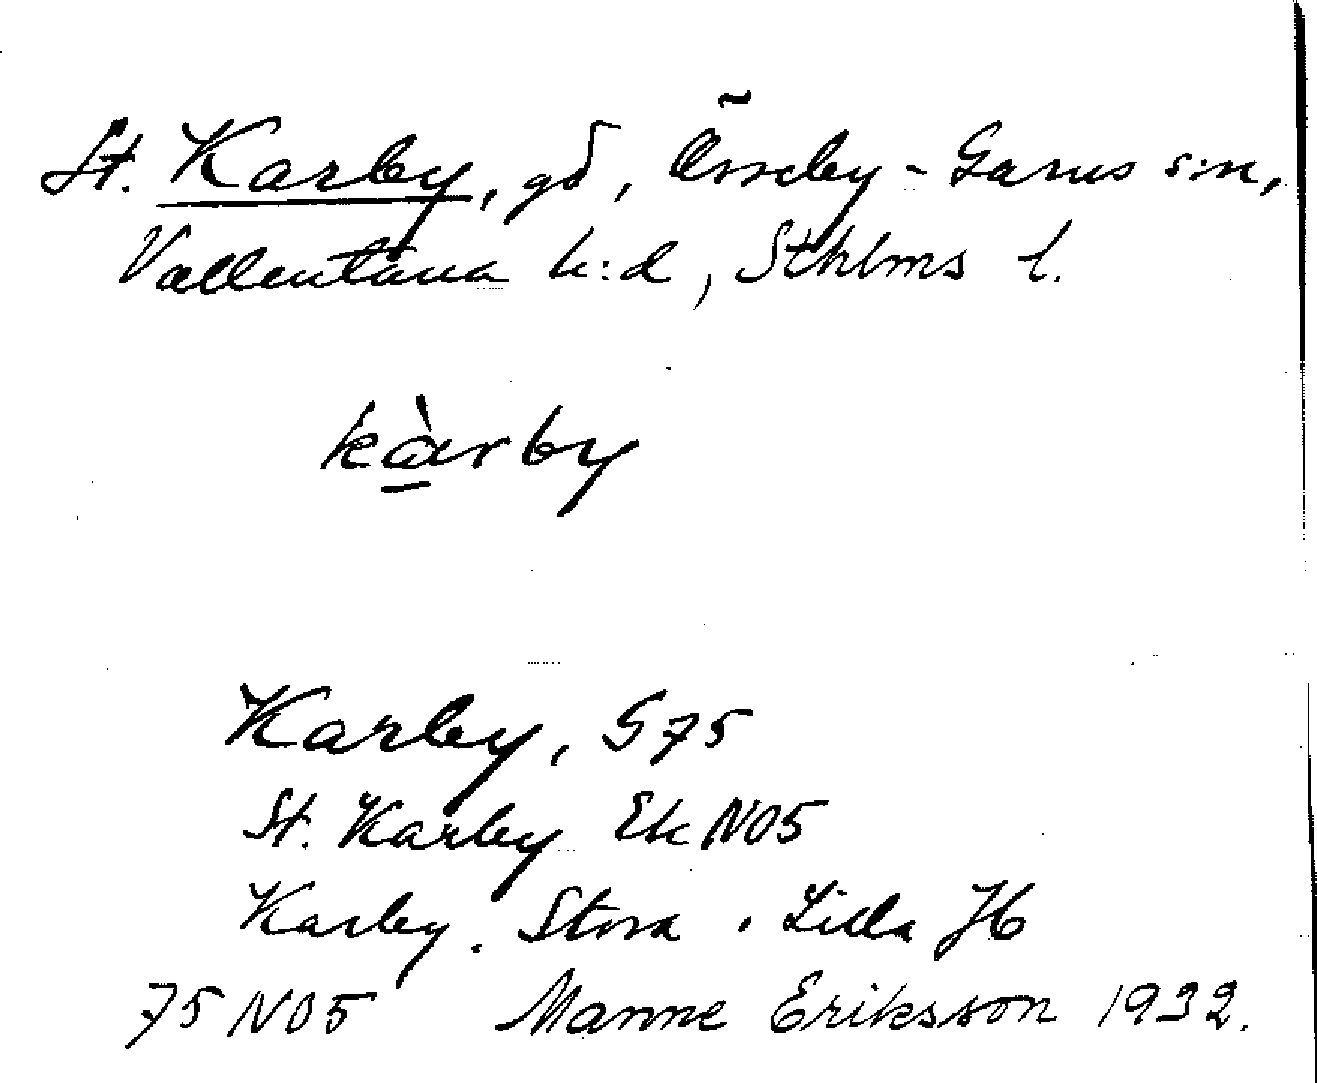 St. Karby, gd, Össeby-Garns s:n,
Vallentuna h:d, Sthlms l.
kàrby
Karby, G75
St. Karby Ek NO5
Karby. Stora . Lilla Jb
75 NO5 Manne Eriksson 1932.